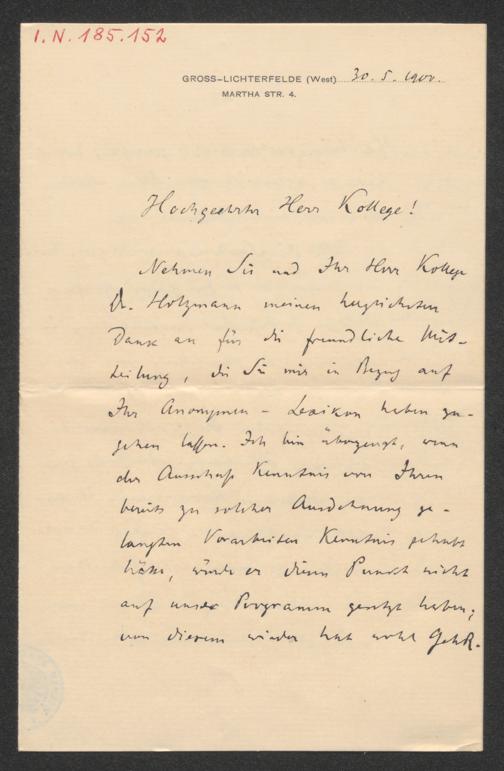 I.N. 185.152
GROSS-LICHTERFELDE (West) 30. 5. 1900.
MARTHA STR. 4.
Hochgeehrter Herr Kollege!
Nehmen Sie und Ihr Herr Kollege
Dr. Holzmann meinen herzlichsten
Dank an für die freundliche Mit-
teilung, die Sie mir in Bezug auf
Ihr Anonymen-Lexikon haben zu-
gehen lassen. Ich bin überzeugt, wenn
der Ausschuß Kenntnis von Ihren
bereits zu solcher Ausdehnung ge-
langten Vorarbeiten Kenntnis gehabt
hätte, würde er diesen Punkt nicht
auf unser Programm gesetzt haben;
von diesem wieder hat wohl GehR.